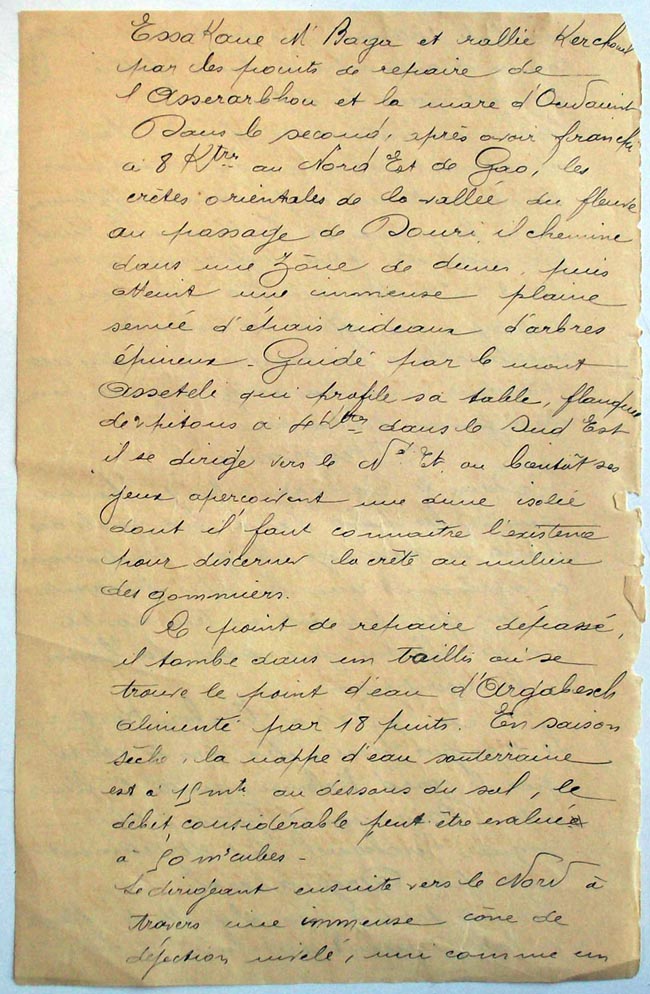 Essakane M'Baga et rallie Kerchouel
par les points de repaire de
l'Asserarbhou et la mare d'
Dans le second, après avoir franchi
à 8 Ktres au Nord Est de Gao, les
crêtes orientales de la vallée du fleuve
au passage de Douri, il chemine
dans une zône de dunes, puis
atteint une immense plaine
semée d'épais rideaux d'arbres
épineux - Guidé par le mont
Assetelé qui profile sa table, flanquée
de pitons à 4 Ktres dans le Sud Est
il se dirige vers le Nd Et. ou bientôt ses
yeux aperçoivent une dune isolée
dont il faut connaître l'existence
pour discerner la crête au milieu
des gommiers.
Le point de repaire dépassé,
il tombe dans un taillis où se
trouve le point d'eau d'Argabesch
alimenté par 18 puits. En saison
sèche, la nappe d'eau souterraine
est à 15 mts au dessous du sol, le
débit considérable peut être evalué
à 50 m cubes -
Se dirigeant ensuite vers le Nord à
travers une immense cône de
déjection nivelé, uni comme un